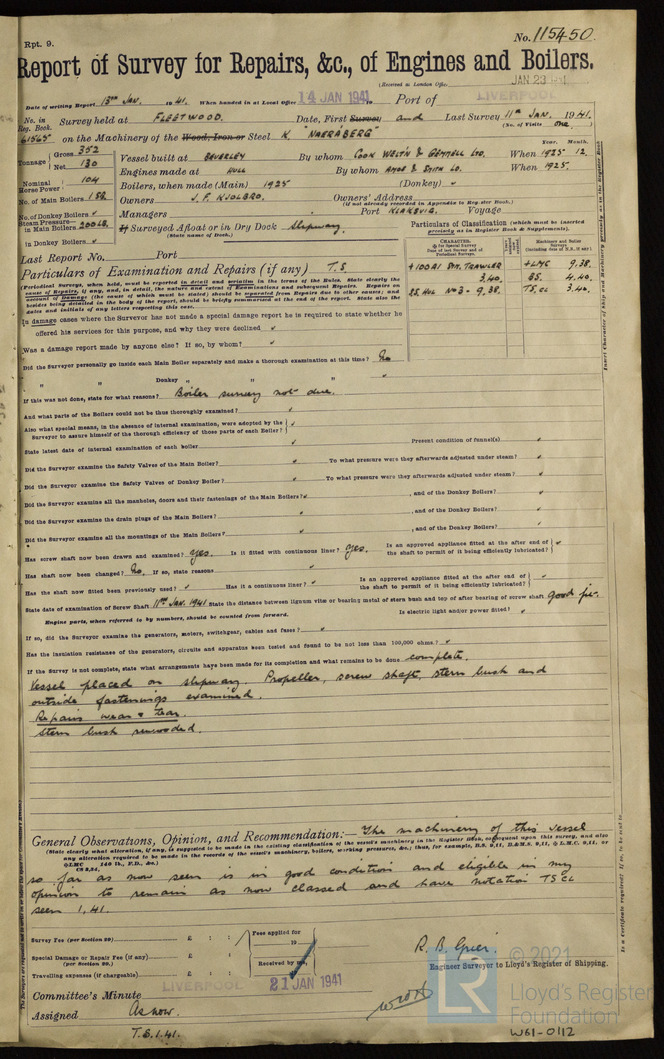 Rpt. 9.
No. 115450.
Report of Survey for Repairs, &c., of Engines and Boilers.
(Received at London Office JAN 23 1941
Date of writing Report 13th Jan. 1941. When handed in at Local Office 14 JAN 1941 Port of LIVERPOOL
No. in Reg. Book. Survey held at FLEETWOOD. Date, First Survey and Last Survey 11th JAN. 1941.
(No. of Visits one)
61565 on the Machinery of the Wood, Iron or Steel K "NAERABERG"
Tonnage Gross 352 Net 130
Vessel built at BEVERLEY By whom COOK WELT'N & GEMMELL LTD. When Year. Month. 1925 12.
Engines made at HULL By whom AMOS & SMITH LD. When 1925.
Nominal Horse Power 104
Boilers, when made (Main) 1925 (Donkey) ✓
No. of Main Boilers 1 SB.
Owners J. F. KJOLBRO. Owners' Address
(if not already recorded in Appendix to Register Book.)
No. of Donkey Boilers ✓
Managers Port KLAKSVIG. Voyage
Steam Pressure in Main Boilers 200 LB.
in Donkey Boilers ✓
If Surveyed Afloat or in Dry Dock Slipway.
(State name of Dock.)
Particulars of Classification (which must be inserted precisely as in Register Book & Supplements).
Last Report No. Port
Particulars of Examination and Repairs (if any) T.S.
CHARACTER.
Machinery and Boiler Surveys
+100A1 Stm. TRAWLER
3.40.
SS. HUL No3 - 9,38.
+LMC 9.38.
BS. 4.40.
TS,CL 3.40.
(Periodical Surveys, when held, must be reported in detail and seriatim in the terms of the Rules. State clearly the cause of Repairs, if any, and, in detail, the nature and extent of Examinations and subsequent Repairs. Repairs on account of Damage (the cause of which must be stated) should be separated from Repairs due to other causes; and besides being detailed in the body of the report, should be briefly summarised at the end of the report. State also the dates and initials of any letters respecting this case.
In damage cases where the Surveyor has not made a special damage report he is required to state whether he
offered his services for this purpose, and why they were declined ✓
Was a damage report made by anyone else? If so, by whom? ✓
Did the Surveyor personally go inside each Main Boiler separately and make a thorough examination at this time? No
" " Donkey " " " ✓
If this was not done, state for what reasons? Boiler survey not due.
And what parts of the Boilers could not be thoroughly examined? ✓
Also what special means, in the absence of internal examination, were adopted by the Surveyor to assure himself of the thorough efficiency of those parts of each Boiler? ✓
State latest date of internal examination of each boiler ✓ Present condition of funnel(s) ✓
Did the Surveyor examine the Safety Valves of the Main Boiler? ✓ To what pressure were they afterwards adjusted under steam? ✓
Did the Surveyor examine the Safety Valves of Donkey Boiler? ✓ To what pressure were they afterwards adjusted under steam? ✓
Did the Surveyor examine all the manholes, doors and their fastenings of the Main Boilers? ✓ , and of the Donkey Boilers? ✓
Did the Surveyor examine the drain plugs of the Main Boilers? ✓ , and of the Donkey Boilers? ✓
Did the Surveyor examine all the mountings of the Main Boilers? ✓ , and of the Donkey Boilers? ✓
Has screw shaft now been drawn and examined? Yes. Is it fitted with continuous liner? Yes. Is an approved appliance fitted at the after end of the shaft to permit of it being efficiently lubricated? ✓
Has shaft now been changed? No. If so, state reasons
Has the shaft now fitted been previously used? ✓ Has it a continuous liner? ✓ Is an approved appliance fitted at the after end of the shaft to permit of it being efficiently lubricated? ✓
State date of examination of Screw Shaft 11th Jan. 1941 State the distance between lignum vitæ or bearing metal of stern bush and top of after bearing of screw shaft good fit.
Engine parts, when referred to by numbers, should be counted from forward. Is electric light and/or power fitted? ✓
If so, did the Surveyor examine the generators, motors, switchgear, cables and fuses? ✓
Has the insulation resistance of the generators, circuits and apparatus been tested and found to be not less than 100,000 ohms? ✓
If the Survey is not complete, state what arrangements have been made for its completion and what remains to be done complete.
Vessel placed on slipway. Propeller, screw shaft, stern bush and
outside fastenings examined.
Repairs wear & tear.
Stern bush rewooded.
General Observations, Opinion, and Recommendation:— The machinery of this vessel
(State clearly what alteration, if any, is suggested to be made in the existing classification of the vessel's machinery in the Register Book, consequent upon this survey, and also any alteration required to be made in the records of the vessel's machinery, boilers, working pressures, &c.; thus, for example, B.S. 9,11, D.&M.S. 9,11, L.M.C. 9,11, or
LMC 140 lb., F.D., &c.)
CS 9,34,
so far as now seen is in good condition and eligible in my
opinion to remain as now classed and have notation TS CL
seen 1.41.
Survey Fee (per Section 29) £ : :
Special Damage or Repair Fee (if any) £ : :
(per Section 29.)
Travelling expenses (if chargeable) £ : :
Fees applied for
19
Received by me,
R. B. Grier.
Engineer Surveyor to Lloyd's Register of Shipping.
Committee's Minute LIVERPOOL 21 JAN 1941
Assigned As now.
T.S.1.41.
© 2021
LR
Lloyd's Register
Foundation
W61-0112